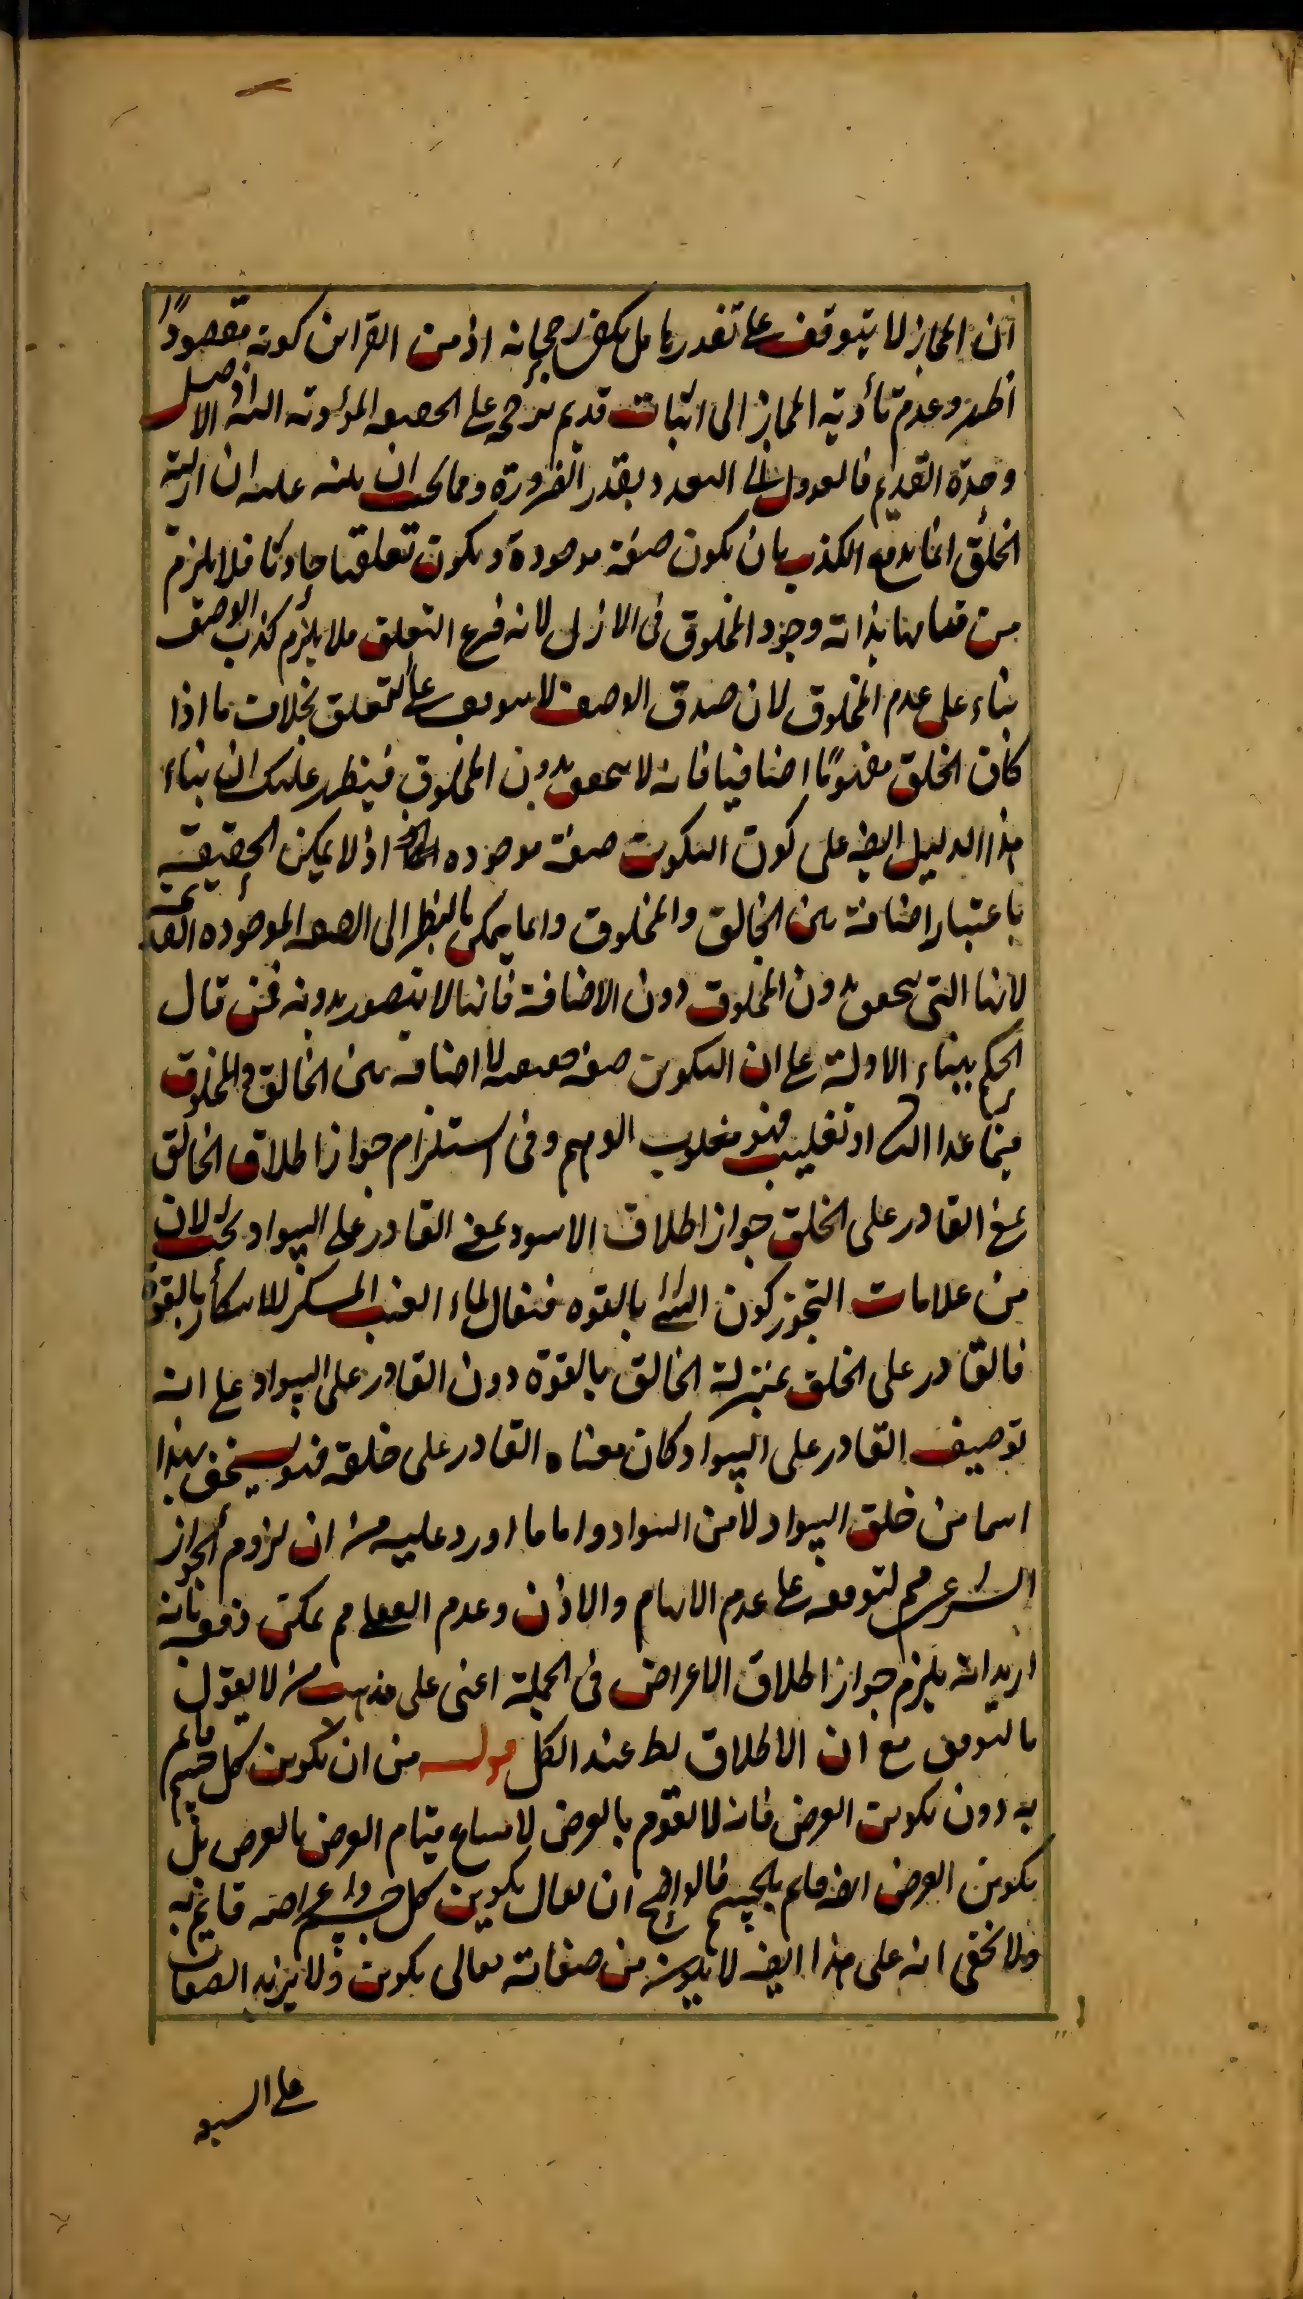 ان المجاز لا يتوقف على تعذرها بل يكفى رجحانه اذ من القراين كونه مقصودًا
اظهر وعدم تأديته المجاز الى اثبات قديم يرجح على الحقيقة المؤدية اليه اذ الاصل
وحدة القديم فالعدول الى التعدد بقدر الضرورة ومما يجب ان ينبه عليه ان ازلية
الخلق انما يدفع الكذب بان يكون صفة موجودة ويكون تعلقها حادثا فلا يلزم
من قيامها بذاته وجود المخلوق فى الازل لانه فرع التعلق فلا يلزم كذب الوصف
بناء على عدم المخلوق لان صدق الوصف لا يتوقف على التعلق بخلاف ما اذا
كان الخلق مفهومًا اضافيا فانه لا يتحقق بدون المخلوق فينظر عليك ان بناء
هذا الدليل ايضا على كون التكوين صفة موجودة اذ لا يمكن الحقيقة
باعتبار اضافة بين الخالق والمخلوق وانما يمكن بالنظر الى الصفة الموجودة القديمة
لانها التى يتحقق بدون المخلوق دون الاضافة فانها لا يتصور بدونه فمن قال
الحكم ببناء الادلة على ان التكوين صفة حقيقية لا اضافة بين الخالق والمخلوق
فيما عدا او تغليب فهو مغلوب الوهم وفى استلزام جواز اطلاق الخالق
بمعنى القادر على الخلق جواز اطلاق الاسود بمعنى القادر على السواد بحث لان
من علامات التجوز كون الشئ بالقوه فيقال لماء العنب المسكر للاسكار بالقوة
فالقادر على الخلق بمنزلة الخالق بالقوة دون القادر على السواد على انه
توصيف القادر على السواد كان معناه القادر على خلقه فهو يستحق بهذا
اسما من خلق السواد لا من السواد واما ما اورد عليه من ان لزوم الجواز
الشرعى لتوقفه على عدم الايهام والاذن وعدم يمكن دفعه بانه
اريد انه يلزم جواز اطلاق الاعراض فى الجملة اعنى على مذهب من لا يقول
بالتوقيف مع ان الاطلاق بط عند الكل قوله من ان تكوين كل جسم قايم
به دون تكوين العرض فانه لا يقوم بالعرض لامتناع قيام العرض بالعرض بل
تكوين العرض ايضا قايم بالجسم فالواضح ان يقال تكوين كل جسم واعراضه قايم به
ولا يخفى انه على هذا ايضا لا يكون من صفاته تعالى تكوين ولا يزيد الصفات
على السبعة